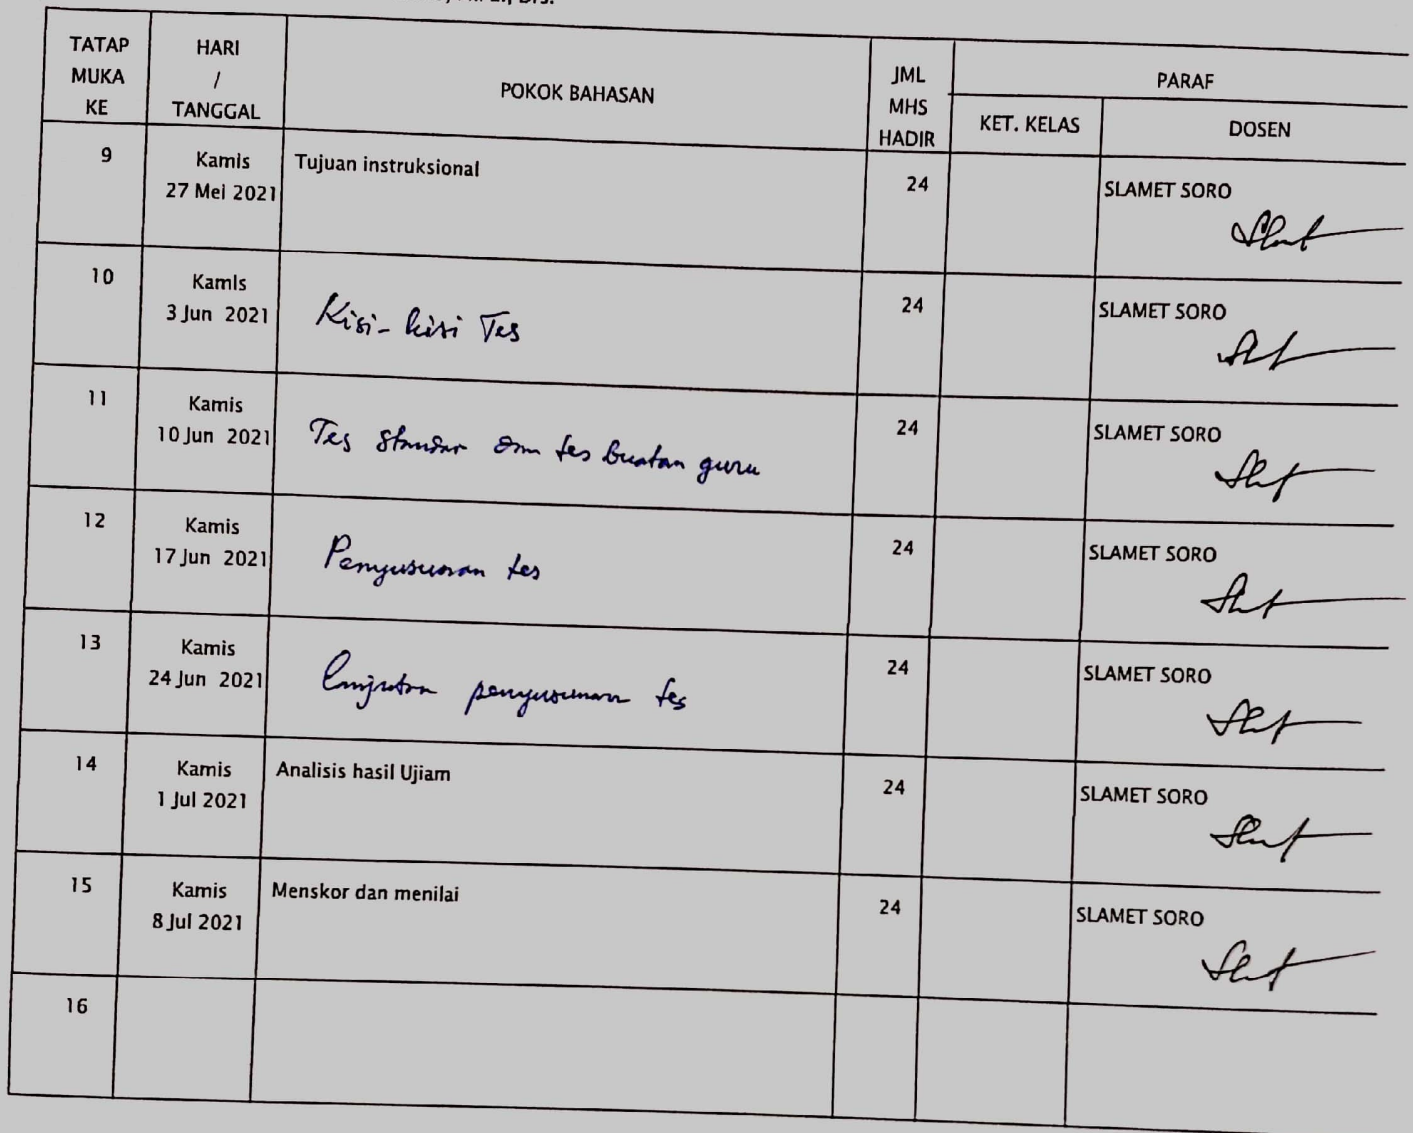 TATAP MUKA KE | HARI / TANGGAL | POKOK BAHASAN | JML MHS HADIR | PARAF
KET. KELAS | DOSEN
9 | Kamis 27 Mei 2021 | Tujuan instruksional | 24 | SLAMET SORO
10 | Kamis 3 Jun 2021 | Kisi-kisi Tes | 24 | SLAMET SORO
11 | Kamis 10 Jun 2021 | Tes standar dan tes buatan guru | 24 | SLAMET SORO
12 | Kamis 17 Jun 2021 | Penyusunan tes | 24 | SLAMET SORO
13 | Kamis 24 Jun 2021 | penyusunan tes | 24 | SLAMET SORO
14 | Kamis 1 Jul 2021 | Analisis hasil Ujiam | 24 | SLAMET SORO
15 | Kamis 8 Jul 2021 | Menskor dan menilai | 24 | SLAMET SORO
16